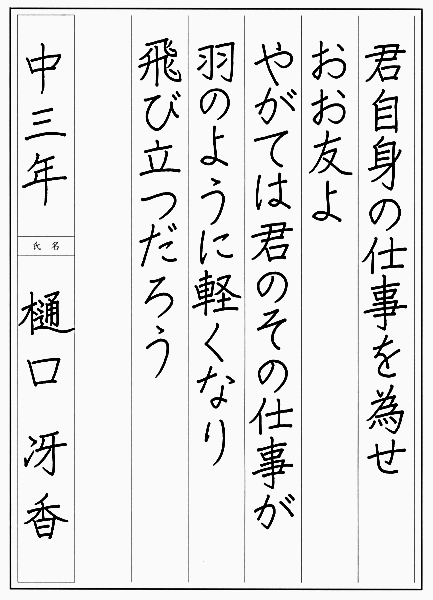 君自身の仕事を為せ
おお友よ
やがては君のその仕事が
羽のように軽くなり
飛び立つだろう
中三年
氏名
樋口 冴香